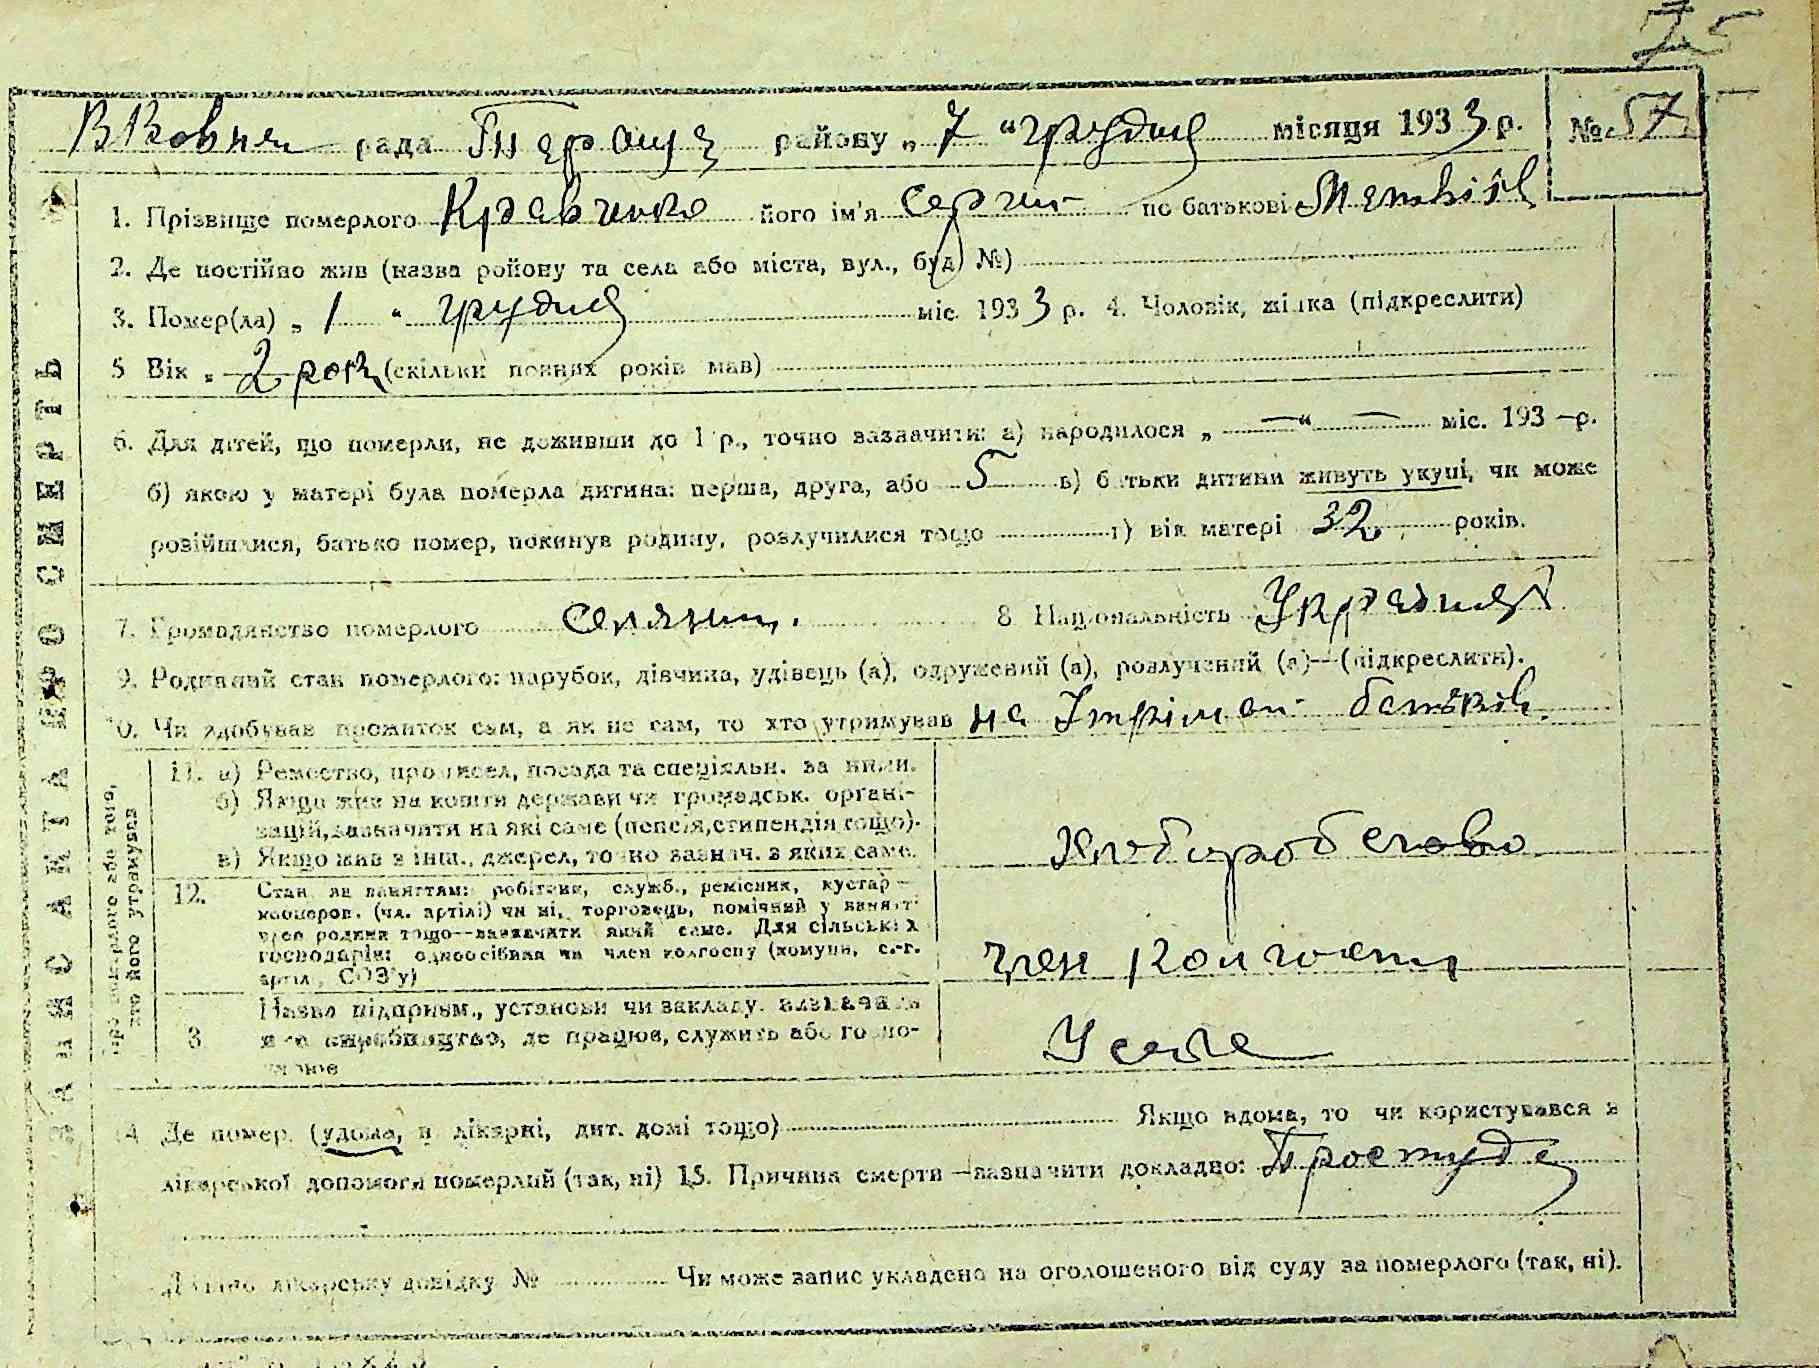 75
ВКовня рада Тераще району „ 7 “ грудня місяця 1933 р. № 57
1. Прізвище померлого Кравченко його ім'я Сергий по батькові Матвієв
2. Де постійно жив (назва району та села або міста, вул., буд. №)
3. Помер(ла) „ 1 “ грудня міс. 1933 р. 4. Чоловік, жінка (підкреслити)
5 Вік „ 2 рок (скільки повних років мав)
6. Для дітей, що померли, не доживши до 1 р., точно зазначити: а) народилося „ — “ — міс. 193 – р.
б) якою у матері була померла дитина: перша, друга, або 5 в) батьки дитини живуть укупі, чи може
розійшлися, батько помер, покинув родину, розлучилися тощо г) вік матері 32 років.
7. Громадянство померлого селянин. 8 Національність Українец
9. Родинний стан померлого: парубок, дівчина, удівець (а), одружений (а), розлучений (а)—(підкреслити).
0. Чи здобував прожиток сам, а як не сам, то хто утримував на Утріман батьків.
11. а) Ремество, промисел, посада та спеціяльн. за ними.
б) Якщо жив на кошти держави чи громадськ. органі-
зацій, зазначити на які саме (пенсія, стипендія тощо).
в) Якщо жив з інш. джерел, точно зазнач. з яких саме.
Хлеборобство
12. Стан як заняттям: робітник, служб., ремісник, кустар –
кооперов. (чл. артілі) чи ні, торговець, помічний у занятті
члена родини тощо—зазначити який саме. Для сільських
господарів: одноосібник чи член колгоспу (комуни, с.-г.
артіл., СОЗ'у)
член колгоспу
3 Назва підприєм., установи чи закладу, зазначаючи
його виробництво, де працює, служить або госпо-
дарює
У селе
ЗАПИС АКТА ПРО СМЕРТЬ
про померлого або того, хто його утримував
14 Де помер (удома, в лікарні, дит. домі тощо) Якщо вдома, то чи користувався з
лікарської допомоги померлий (так, ні) 15. Причина смерти —зазначити докладно: Простуда
Видано лікарську довідку № Чи може запис укладено на оголошеного від суду за померлого (так, ні).